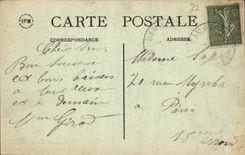 IPM
CARTE POSTALE
CORRESPONDANCE
ADRESSE
72
Bon Souvenir
et bons baisers
à tous deux
et à demain
Mme Girod
Madame
70 rue Myrrha
à
Paris